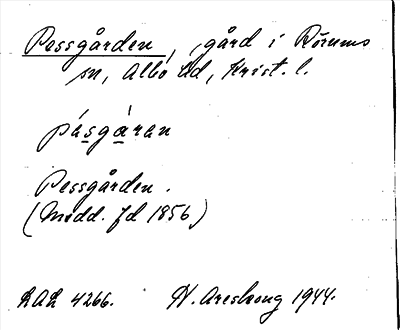 Possgården, gård i Rörums
sn, Albo hd, Krist. l.
pásgáran
Possgården.
(Medd. fd 1856)
LAL 4266. N. Areskoug 1944.